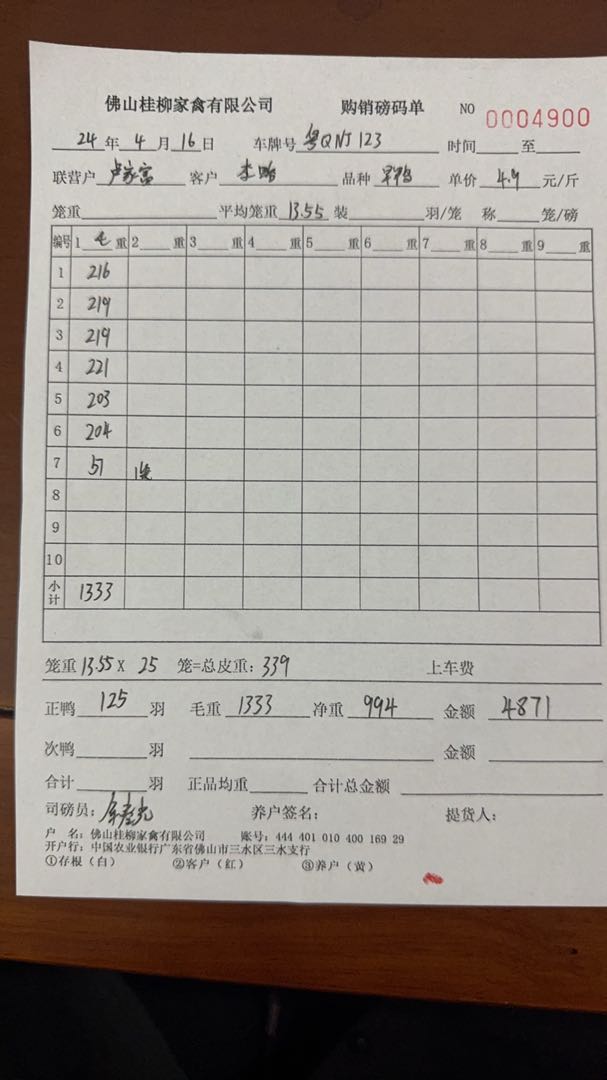 佛山桂柳家禽有限公司 购销磅码单 NO 0004900
24年4月16日 车牌号粤QNJ123 时间 至
联营户 卢家富 客户 品种 单价4.9元/斤
笼重 平均笼重13.55装 羽/笼 称 笼/磅
编号 1毛重 2 重 3 重 4 重 5 重 6 重 7 重 8 重 9 重
1 216
2 219
3 219
4 221
5 203
6 204
7 51 1笼
8
9
10
小计 1333
笼重13.55X25笼=总皮重:339 上车费
正鸭125羽 毛重1333 净重994 金额4871
次鸭 羽 金额
合计 羽 正品均重 合计总金额
司磅员: 养户签名: 提货人:
户 名:佛山桂柳家禽有限公司 账号:444 401 010 400 169 29
开户行:中国农业银行广东省佛山市三水区三水支行
①存根(白) ②客户(红) ③养户(黄)